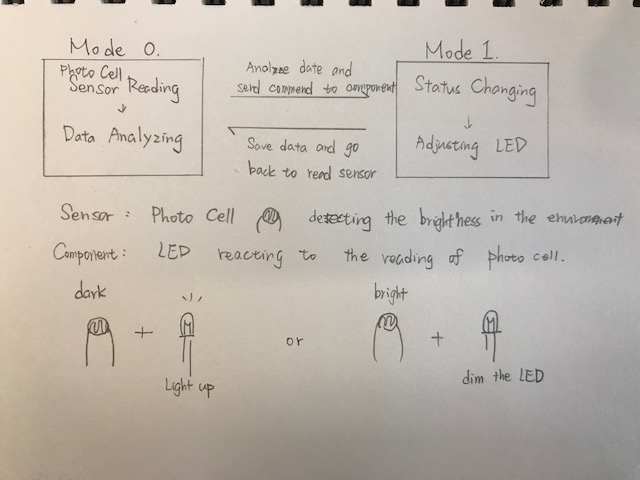 Mode 0.
Photo Cell
Sensor Reading
↓
Data Analyzing
Analyze date and
send commend to component
Save data and go
back to read sensor
Mode 1.
Status Changing
↓
Adjusting LED
Sensor : Photo Cell detecting the brightness in the environment
Component : LED reacting to the reading of photo cell.
dark
+
Light up
or
bright
+
dim the LED